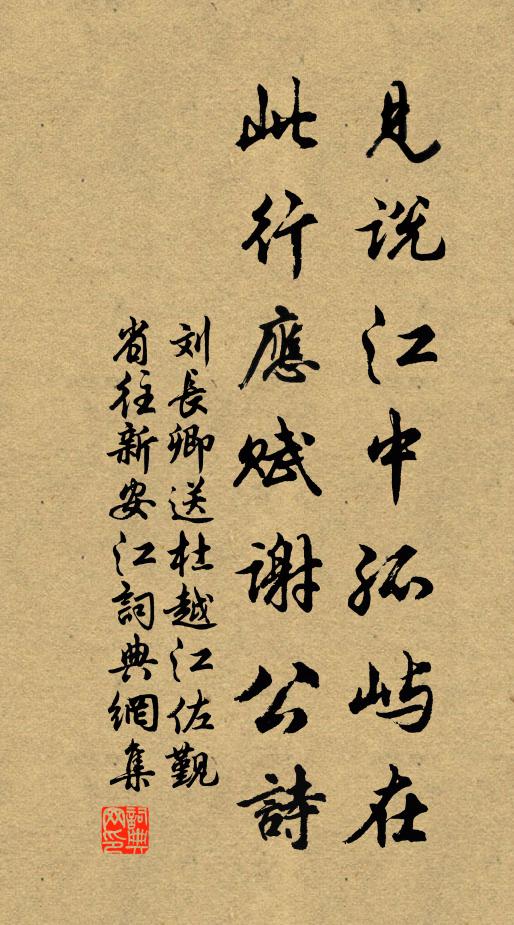 见说江中孤屿在
此行應赋谢公詩
刘長卿送杜越江佐觐
省往新安江詞典網集
詞典
网印